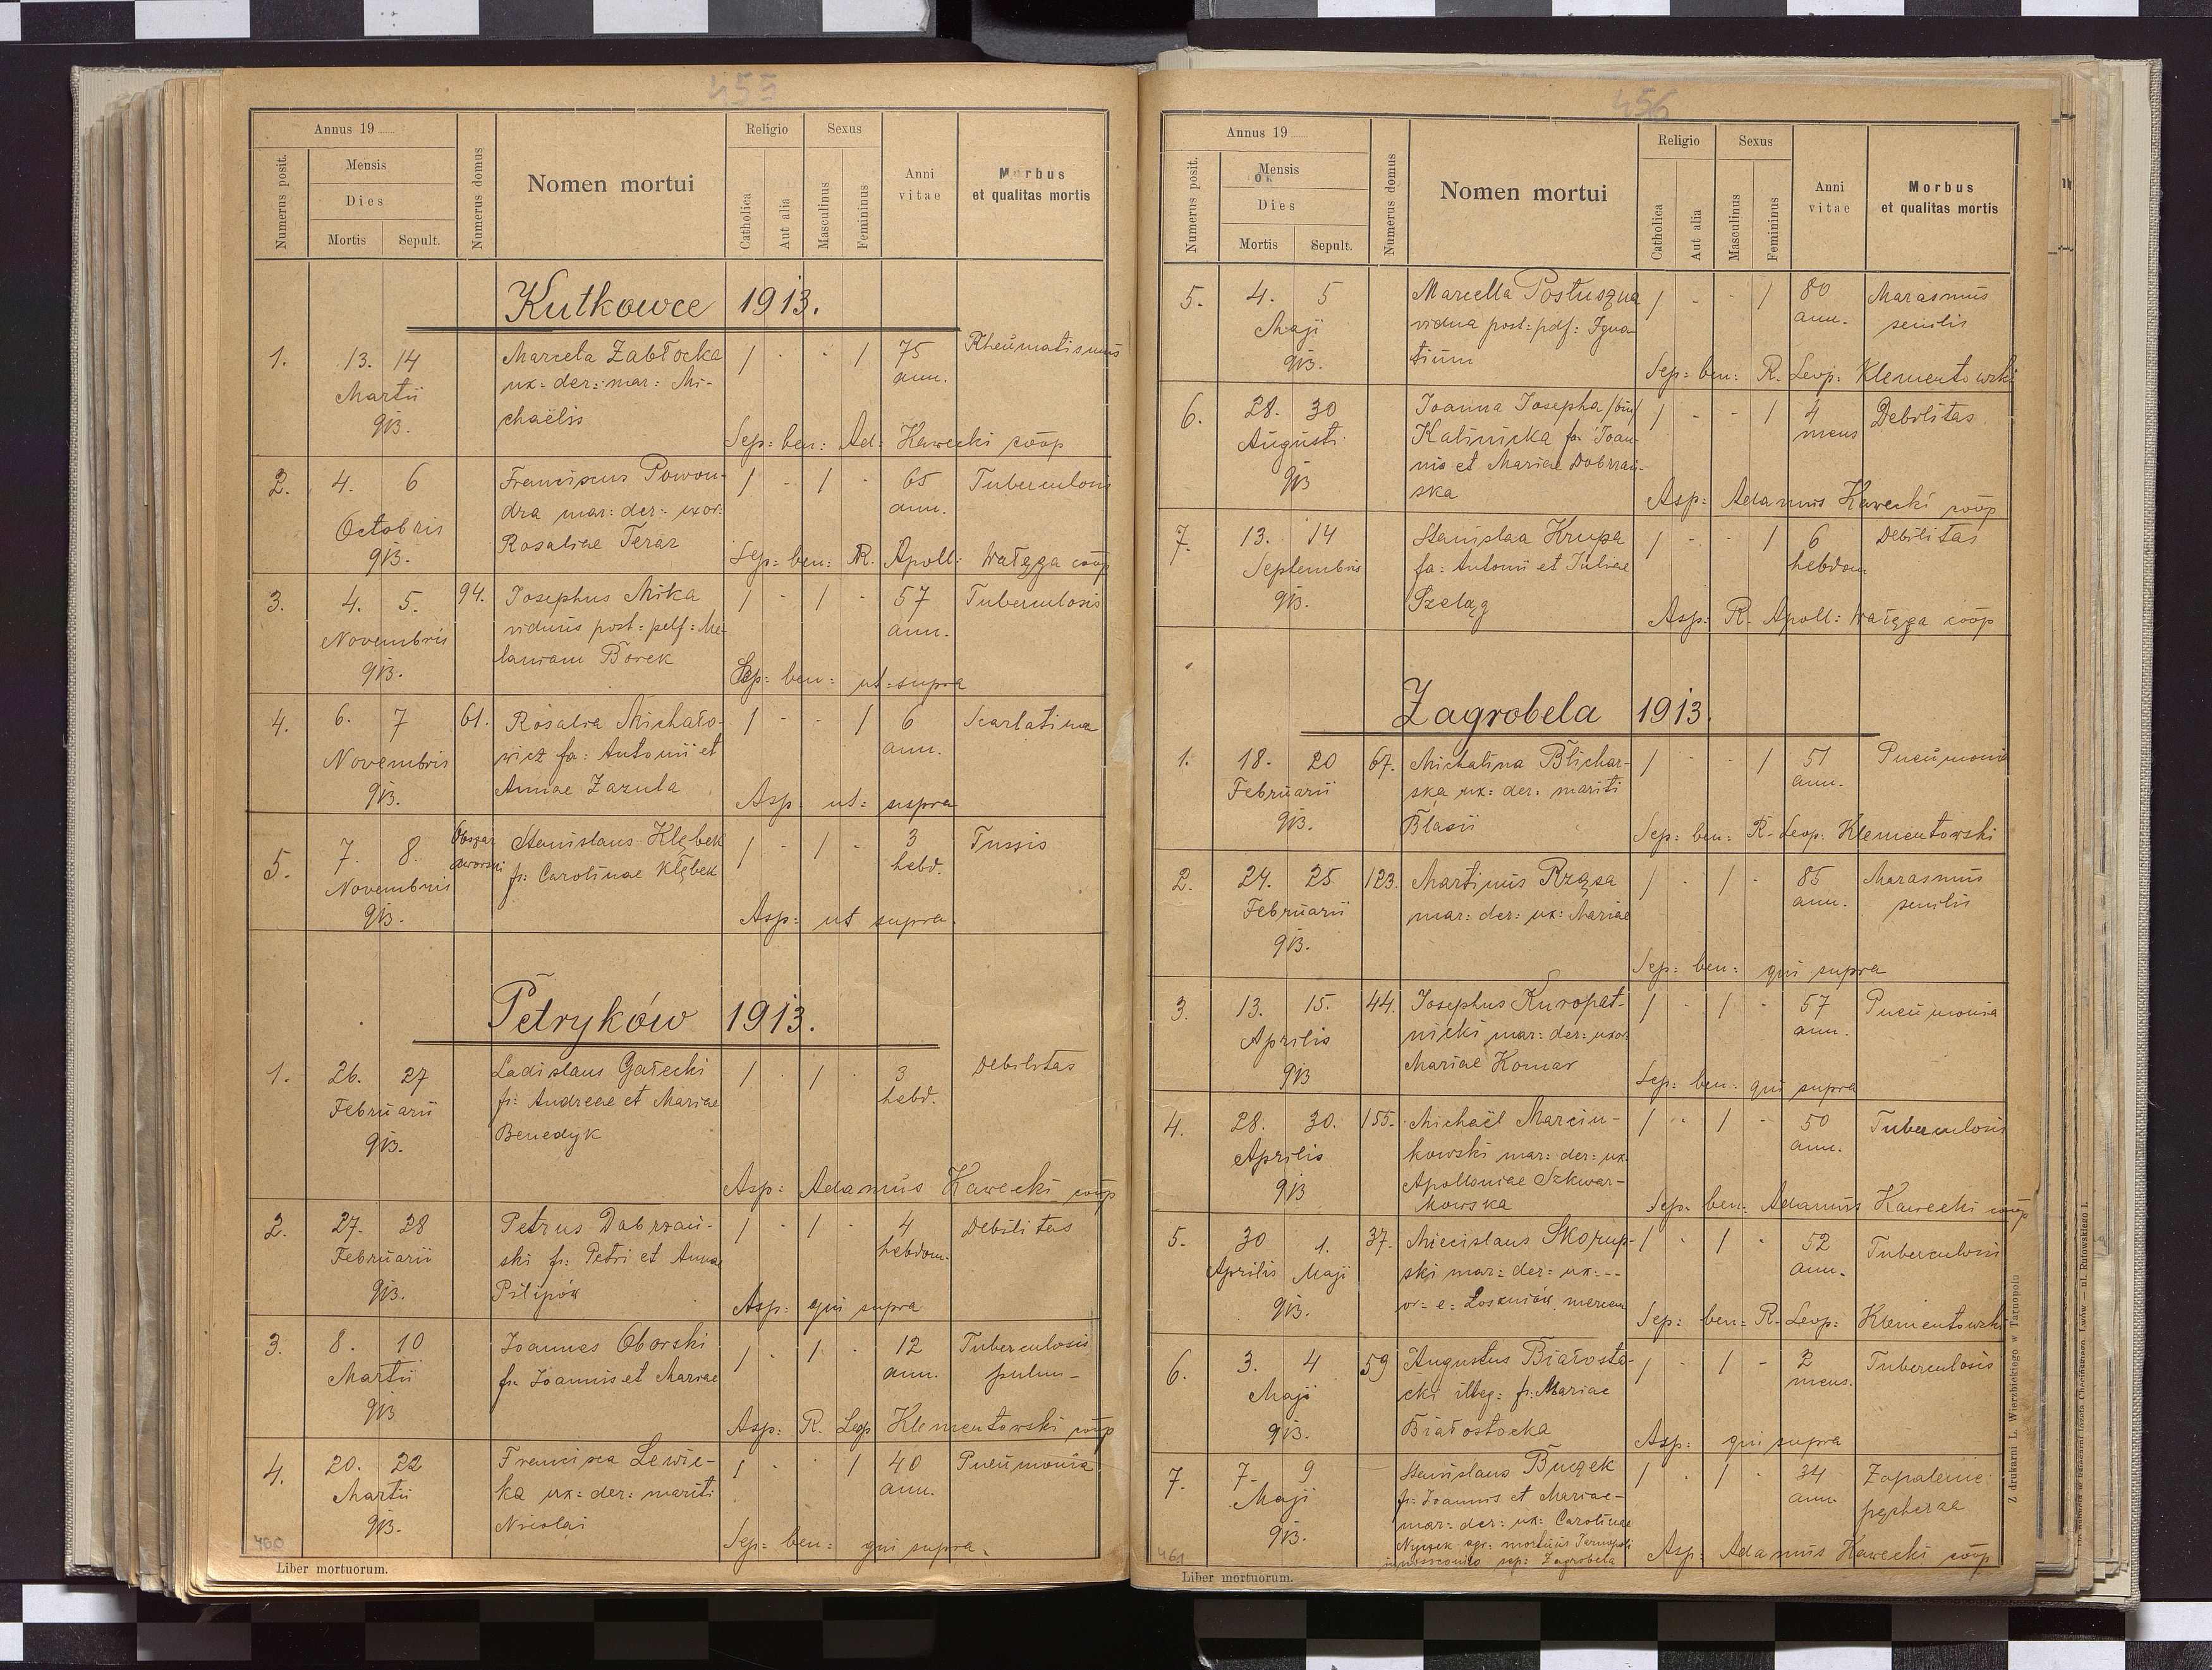 455
Annus 19
Numerus posit.
Mensis
Dies
Mortis Sepult.
Numerus domus
Nomen mortui
Religio
Catholica
Aut alia
Sexus
Masculinus
Femininus
Anni vitae
Morbus et qualitas mortis
Kutkowce 1913.
1. 13. 14 Marcela Zabłocka 1 - - 1 75 Rheumatismus
Martii ux: der: mar: Mi- ann.
913. chaëlis
Sep: ben: Ad: Kawecki coop
2. 4. 6 Franciscus Powon- 1 - 1 - 65 Tuberculosis
Octobris dra mar: der: uxor: ann.
913. Rosaliae Teraz
Sep: ben: R. Apoll: Wałęga coop
3. 4. 5. 94. Josephus Mika 1 - 1 - 57 Tuberculosis
Novembris viduus post: pdf: Me- ann.
913. laniam Borek
Sep: ben: ut supra
4. 6. 7 61. Rosalia Michało- 1 - - 1 6 Scarlatina
Novembris wicz fa: Antonii et ann.
913. Annae Zazula
Asp: ut: supra
5. 7. 8. Obszar dworski Stanislaus Klębek 1 - 1 - 3 Tussis
Novembris f: Carolinae Klębek hebd.
913.
Asp: ut supra.
Petryków 1913.
1. 26. 27 Ladislaus Gałecki 1 - 1 - 3 Debilitas
Februarii f: Andreae et Mariae hebd.
913. Benedyk
Asp: Adamus Kawecki coop
2. 27. 28 Petrus Dobrzań- 1 - 1 - 4 Debilitas
Februarii ski f: Petri et Anna hebdom.
913. Pilipów
Asp: qui supra
3. 8. 10 Joannes Oborski 1 - 1 - 12 Tuberculosis
Martii f: Joannis et Mariae ann. pulm-
913
Asp: R. Leop Klementowski coop
4. 20. 22 Francisca Lewic- 1 - - 1 40 Pneumonia
Martii ka ux: der: mariti ann.
913. Nicolai
Sep: ben: qui supra.
460
Liber mortuorum.
456
Annus 19
Numerus posit.
Mensis
Dies
Mortis Sepult.
Numerus domus
Nomen mortui
Religio
Catholica
Aut alia
Sexus
Masculinus
Femininus
Anni vitae
Morbus et qualitas mortis
5. 4. 5 Marcella Postuszna 1 - - 1 80 Marasmus
Maji vidua post: pdf: Igna- ann. senilis
913. tium
Sep: ben: R. Leop: Klementowski
6. 28. 30 Joanna Josepha /bin/ 1 - - 1 4 Debilitas
Augusti Kalinicka fa: Joan- mens
913 nis et Mariae Dobrzań-
ska
Asp: Adamus Kawecki coop
7. 13. 14 Stanislaa Krupa 1 - - 1 6 Debilitas
Septembris fa: Antonii et Juliae hebdom
913. Szeląg
Asp: R. Apoll: Wałęga coop
Zagrobela 1913.
1. 18. 20 67. Michalina Blichar- 1 - - 1 51 Pneumonia
Februarii ska ux: der: mariti ann.
913. Blasii
Sep: ben: R. Leop. Klementowski
2. 24. 25 123. Martinus Rząsa 1 - 1 - 85 Marasmus
Februarii mar: der: ux: Mariae ann. senilis
913.
Sep: ben: qui supra
3. 13. 15. 44. Josephus Kuropat- 1 - 1 - 57 Pneumonia
Aprilis nicki mar: der: uxor: ann.
913 Mariae Komar
Sep: ben: qui supra
4. 28. 30. 155. Michaël Marcin- 1 - 1 - 50 Tuberculosis
Aprilis kowski mar: der: ux. ann.
913 Apolloniae Szkwar-
kowska
Sep: ben: Adamus Kawecki coop
5. 30 1. 37. Miecislaus Skorup- 1 - 1 - 52 Tuberculosis
Aprilis Maji ski mar: der: ux: -- ann.
913. or: e: Łoszniów
Sep: ben: R. Leop: Klementowski
6. 3. 4 59 Augustus Białosto- 1 - 1 - 2 Tuberculosis
Maji cki illeg: f: Mariae mens.
913. Białostocka
Asp: qui supra
7. 7. 9 Stanislaus Buczek 1 - 1 - 34 Zapalenie
Maji f: Joannis et Mariae- ann. pęcherza
913. mar: der: ux: Carolinae
Nyczek agr: mortuus Tarnopoli
sep: Zagrobela
Asp: Adamus Kawecki coop
461
Liber mortuorum.
Z drukarni L. Wierzbickiego w Tarnopolu
Lwów — ul. Rutowskiego 1.